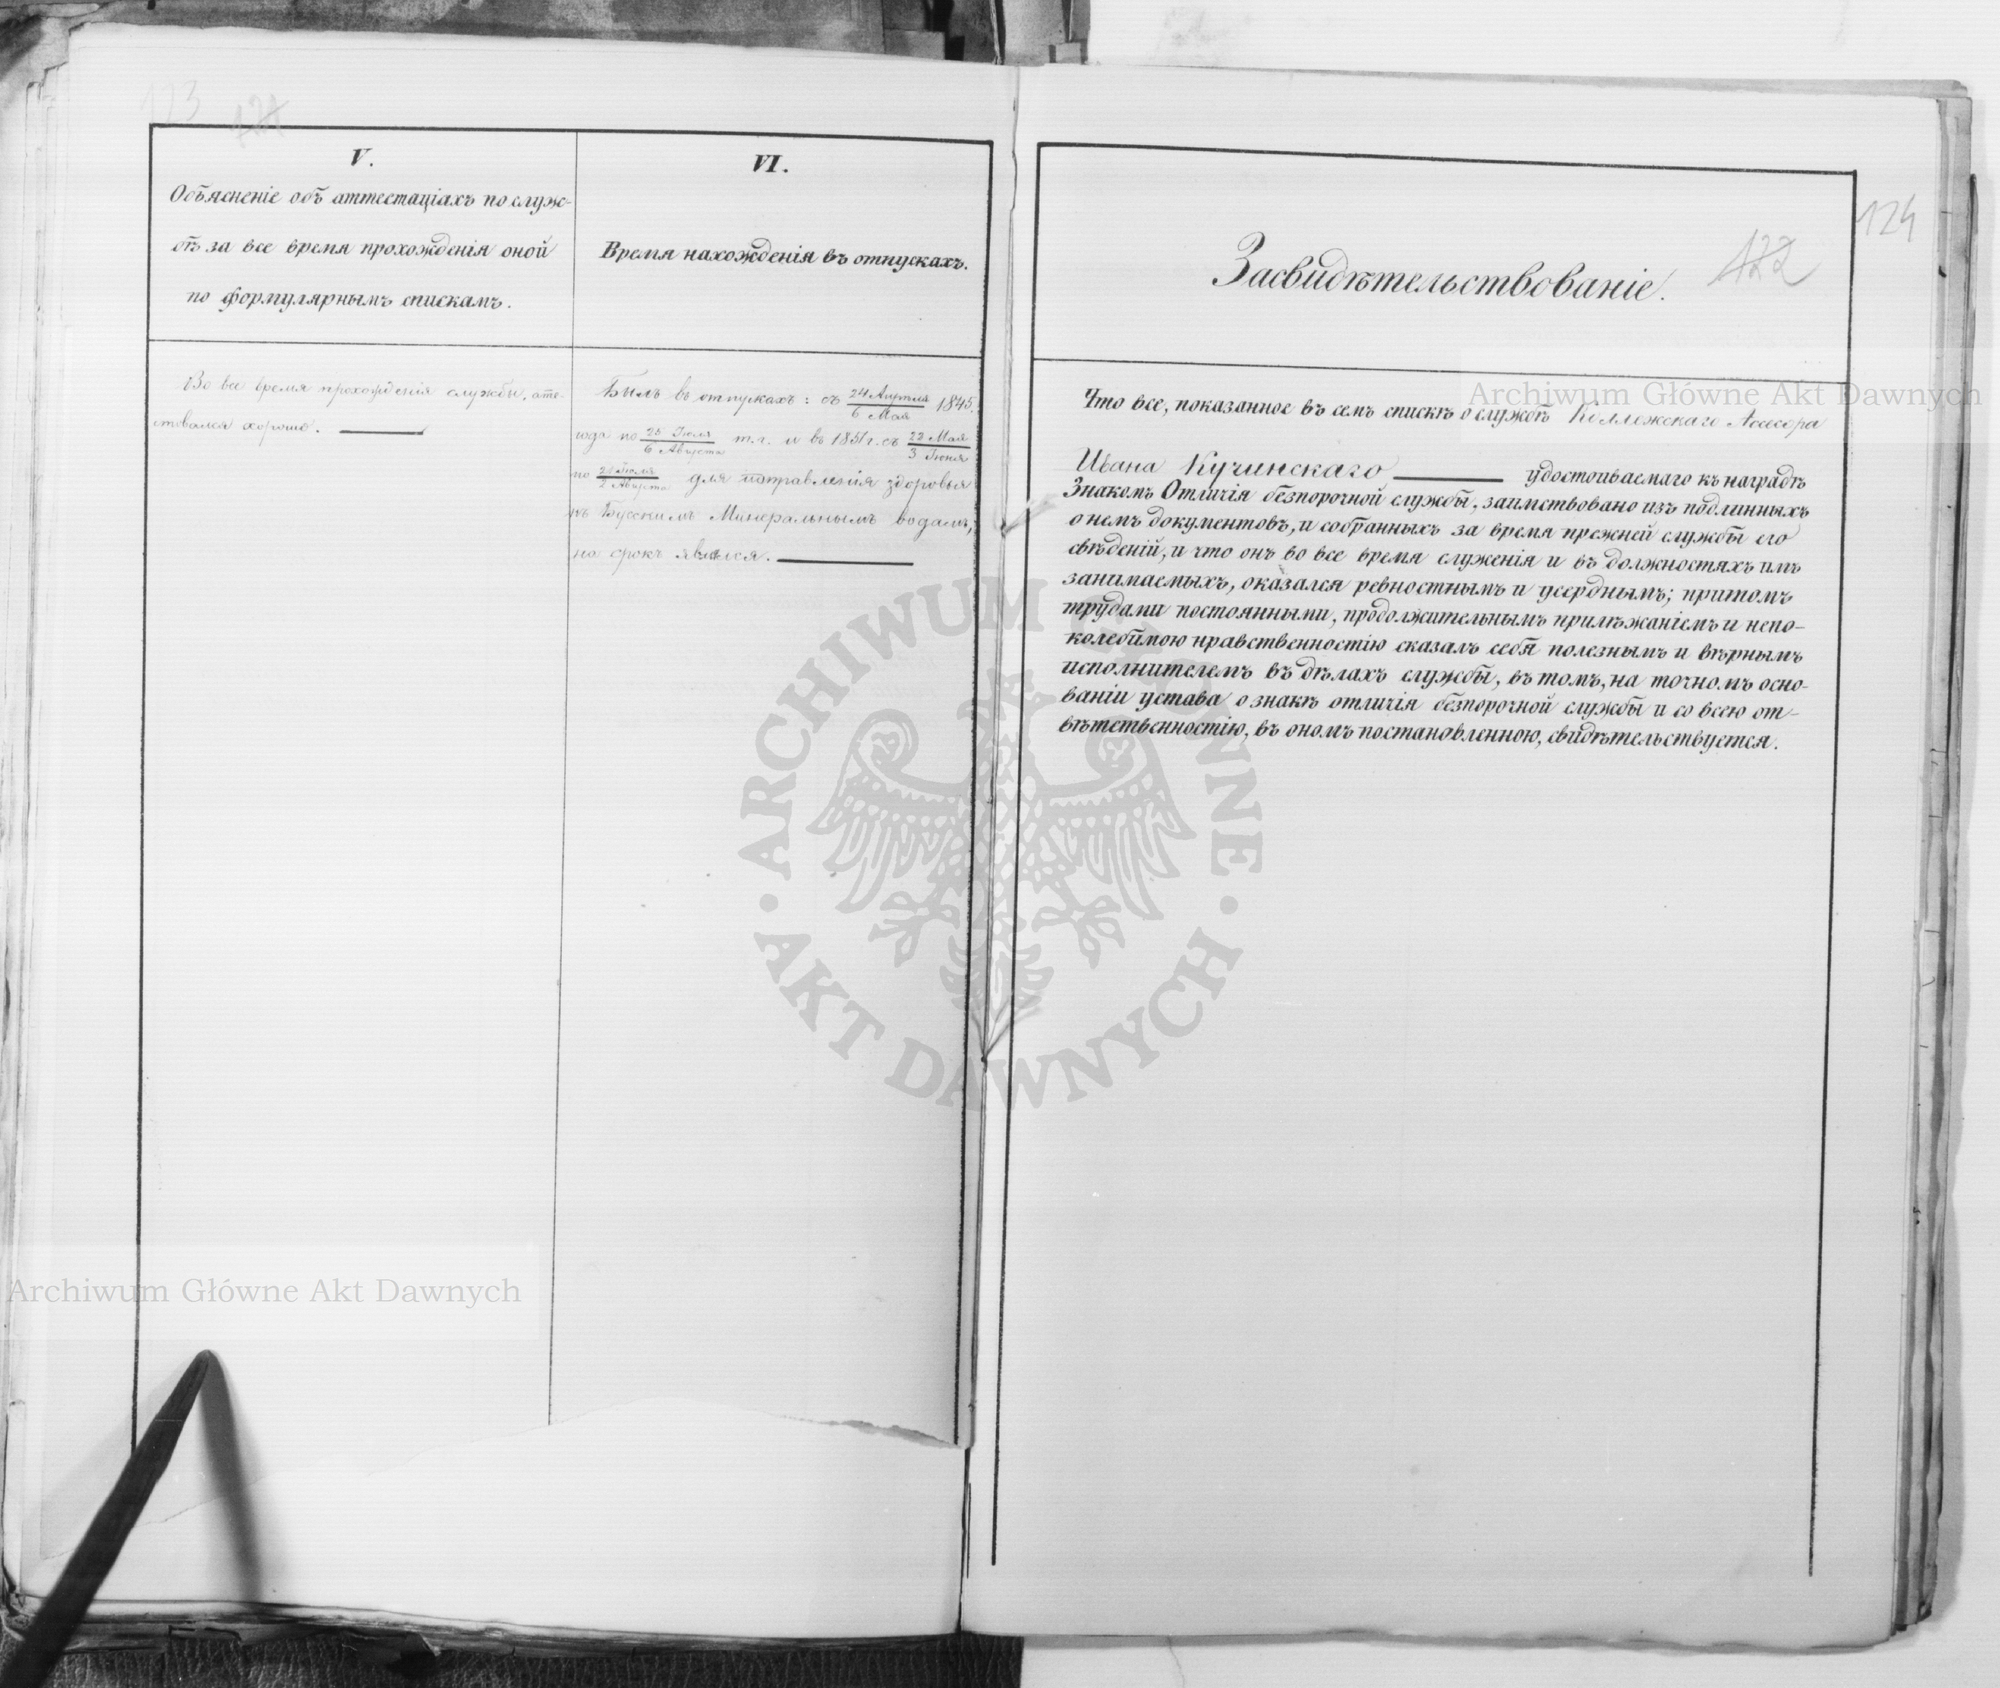 123 121
V.
Объясненіе объ аттестаціяхъ по служ-
бѣ за все время прохожденія оной
по формулярнымъ спискамъ.
Во все время прохожденія службы, атте-
стовался хорошо.
VI.
Время нахожденія въ отпускахъ.
Былъ въ отпускахъ: съ 24 Апрѣля / 6 Мая 1845.
года по 25 Іюля / 6 Августа т.г. и въ 1851 г. съ 22 Мая / 3 Іюня
по 21 Іюля / 2 Августа для поправленія здоровья
къ Бусскимъ Минеральнымъ водамъ,
на срокъ явился.
124
122
Засвидѣтельствованіе.
Что все, показанное въ семъ спискѣ о службѣ Коллежскаго Асесора
Ивана Кучинскаго удостоиваемаго къ наградѣ
Знакомъ Отличія безпорочной службы, заимствовано изъ подлинныхъ
о немъ документовъ, и собранныхъ за время прежней службы его
свѣденій, и что онъ во все время служенія и въ должностяхъ имъ
занимаемыхъ, оказался ревностнымъ и усерднымъ; притомъ
трудами постоянными, продолжительнымъ прилѣжаніемъ и непо-
колебимою нравственностію сказалъ себя полезнымъ и вѣрнымъ
исполнителемъ въ дѣлахъ службы, въ томъ, на точномъ осно-
ваніи устава о знакѣ отличія безпорочной службы и со всею от-
вѣтственностію, въ ономъ постановленною, свидѣтельствуется.
Archiwum Główne Akt Dawnych
ARCHIWUM GŁÓWNE
AKT DAWNYCH
Archiwum Główne Akt Dawnych